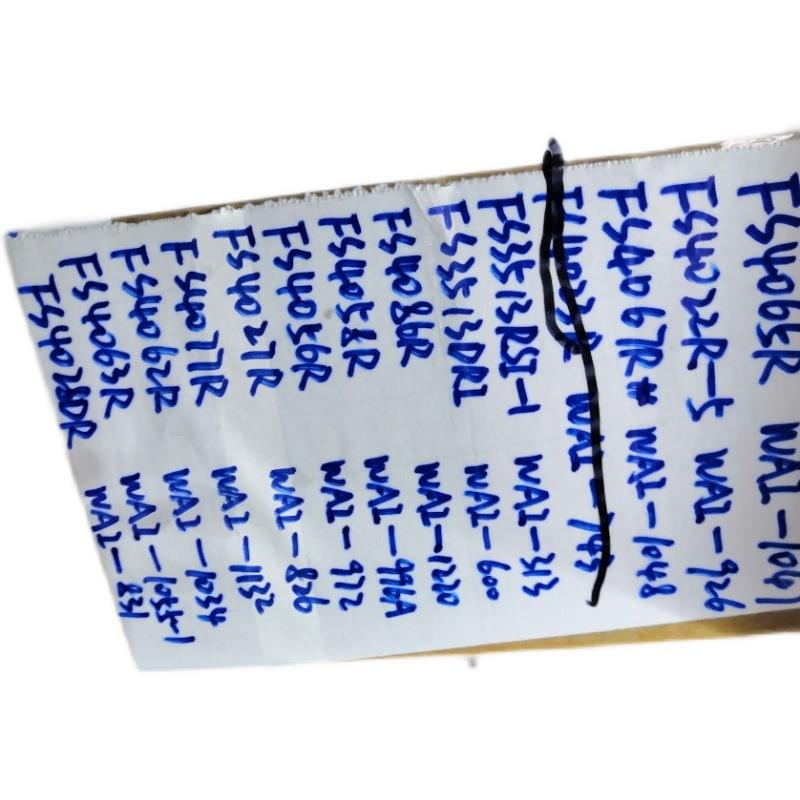 FS4065R WAI-1061
FS4022R-5 WAI-926
FS4067R# WAI-1048
WAI-743
FS3513RSI-1 WAI-313
FS3513DRI WAI-600
FS4086R WAI-1220
FS4058R WAI-996A
FS4056R WAI-972
FS4027R WAI-826
FS4077R WAI-1132
FS4062R WAI-1034
FS4063R WAI-1055-1
FS4028DR WAI-831